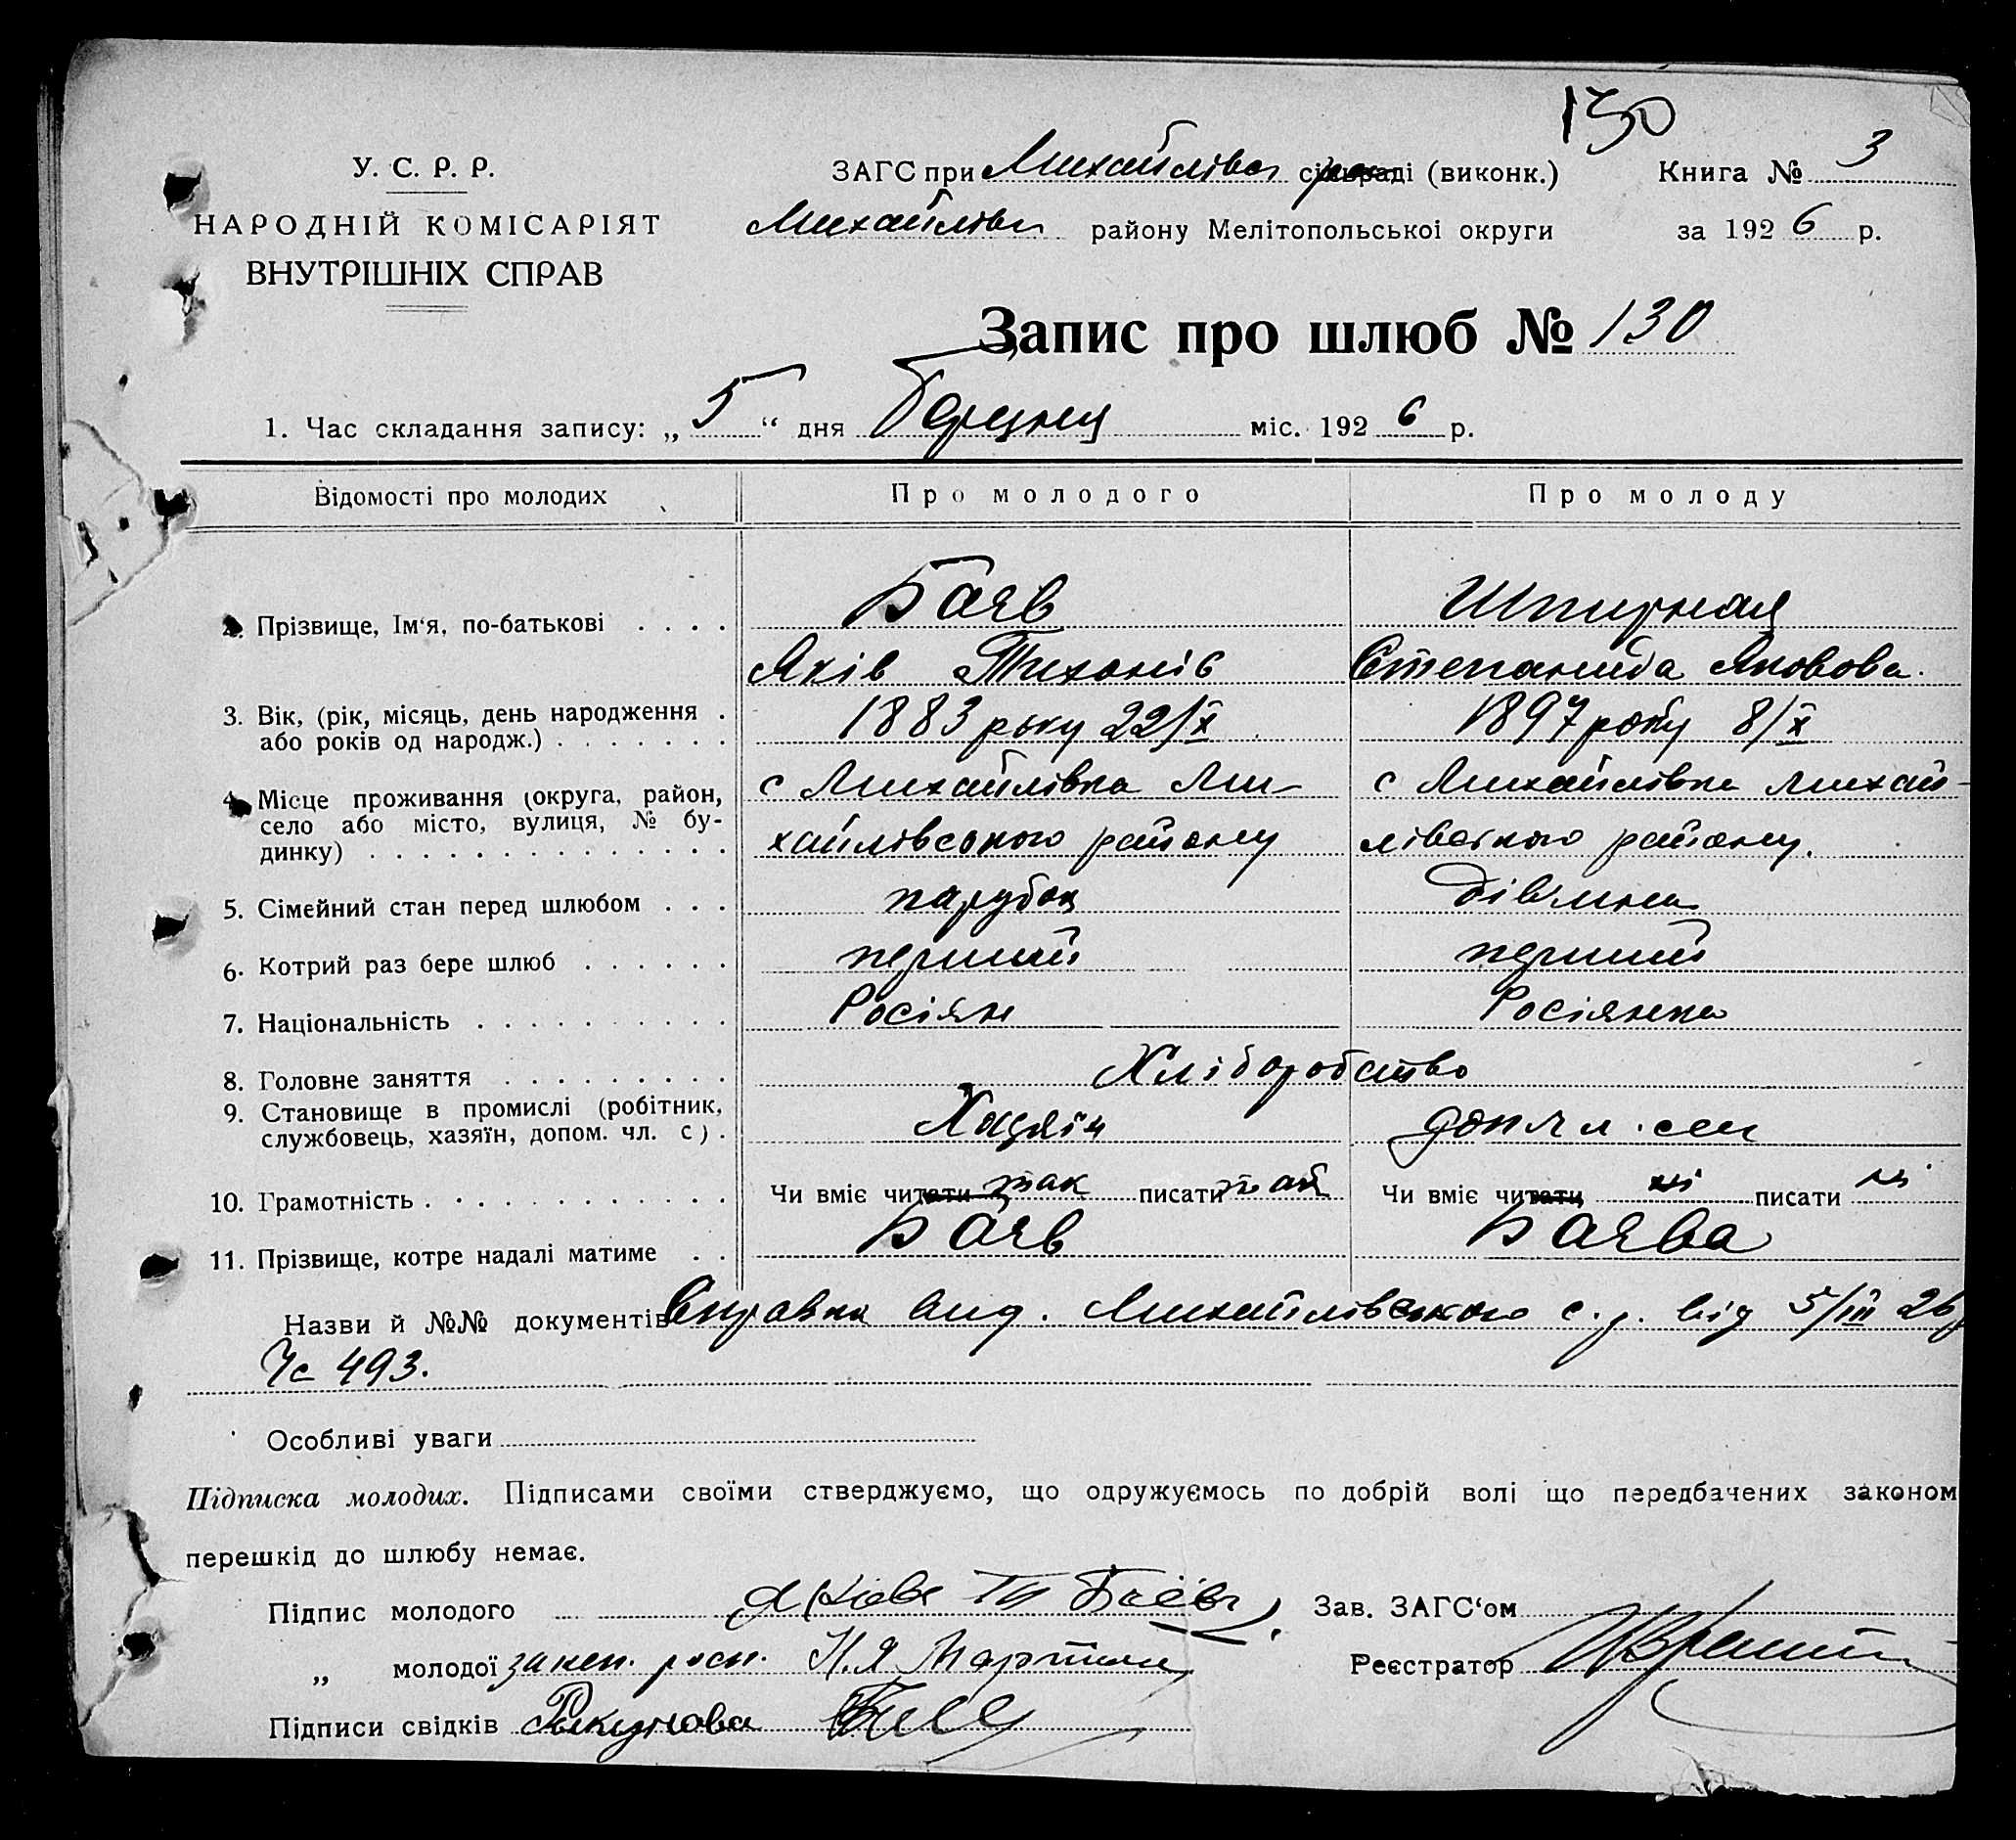 130
У. С. Р. Р.
ЗАГС при Михайлівск сільраді (виконк.) Книга № 3
НАРОДНІЙ КОМІСАРІЯТ
Михайлівськ району Мелітопольської округи за 1926 р.
ВНУТРІШНІХ СПРАВ
Запис про шлюб № 130
1. Час складання запису: „5“ дня Березня міс. 1926 р.
Відомості про молодих Про молодого Про молоду
2. Прізвище, Ім‘я, по-батькові . . . . Баяв Шпирная
Яків Тихонів Степанида Яковова.
3. Вік, (рік, місяць, день народження . 1883 року 22/X 1897 року 8/X
або років од народж.) . . . . . . .
4. Місце проживання (округа, район, с Михайлівка Ми- с Михайлівка Михай-
село або місто, вулиця, № бу-
динку) . . . . . . . . . . . . . хайлівського району лівського району.
5. Сімейний стан перед шлюбом . . . парубок дівчина
6. Котрий раз бере шлюб . . . . . . перший перший
7. Національність . . . . . . . . . . Росіян Росіянка
8. Головне заняття . . . . . . . . . Хліборобство
9. Становище в промислі (робітник, Хазяїн доп чл. сем
службовець, хазяїн, допом. чл. с) .
10. Грамотність . . . . . . . . . . . . Чи вміє читати так писати так Чи вміє читати ні писати ні
11. Прізвище, котре надалі матиме . . Баяв Баява
Назви й №№ документів Справка вид. Михайлівського с.р. від 5/III 26 р
Чс 493.
Особливі уваги
Підписка молодих. Підписами своїми стверджуємо, що одружуємось по добрій волі що передбачених законом
перешкід до шлюбу немає.
Підпис молодого Яковъ Баевъ Зав. ЗАГС‘ом
„ молодої Н.Я Реєстратор
Підписи свідків